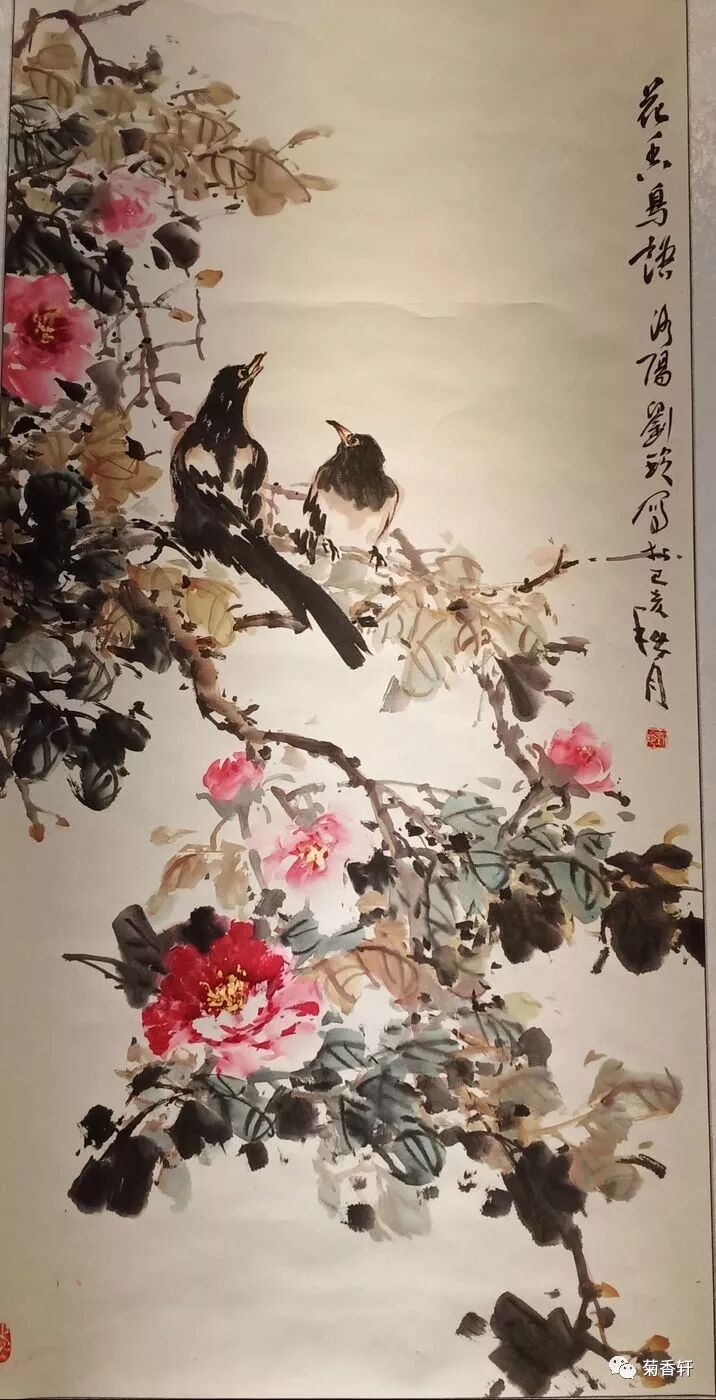 花香鳥语 洛陽劉玲寫於己亥秋月
菊香轩